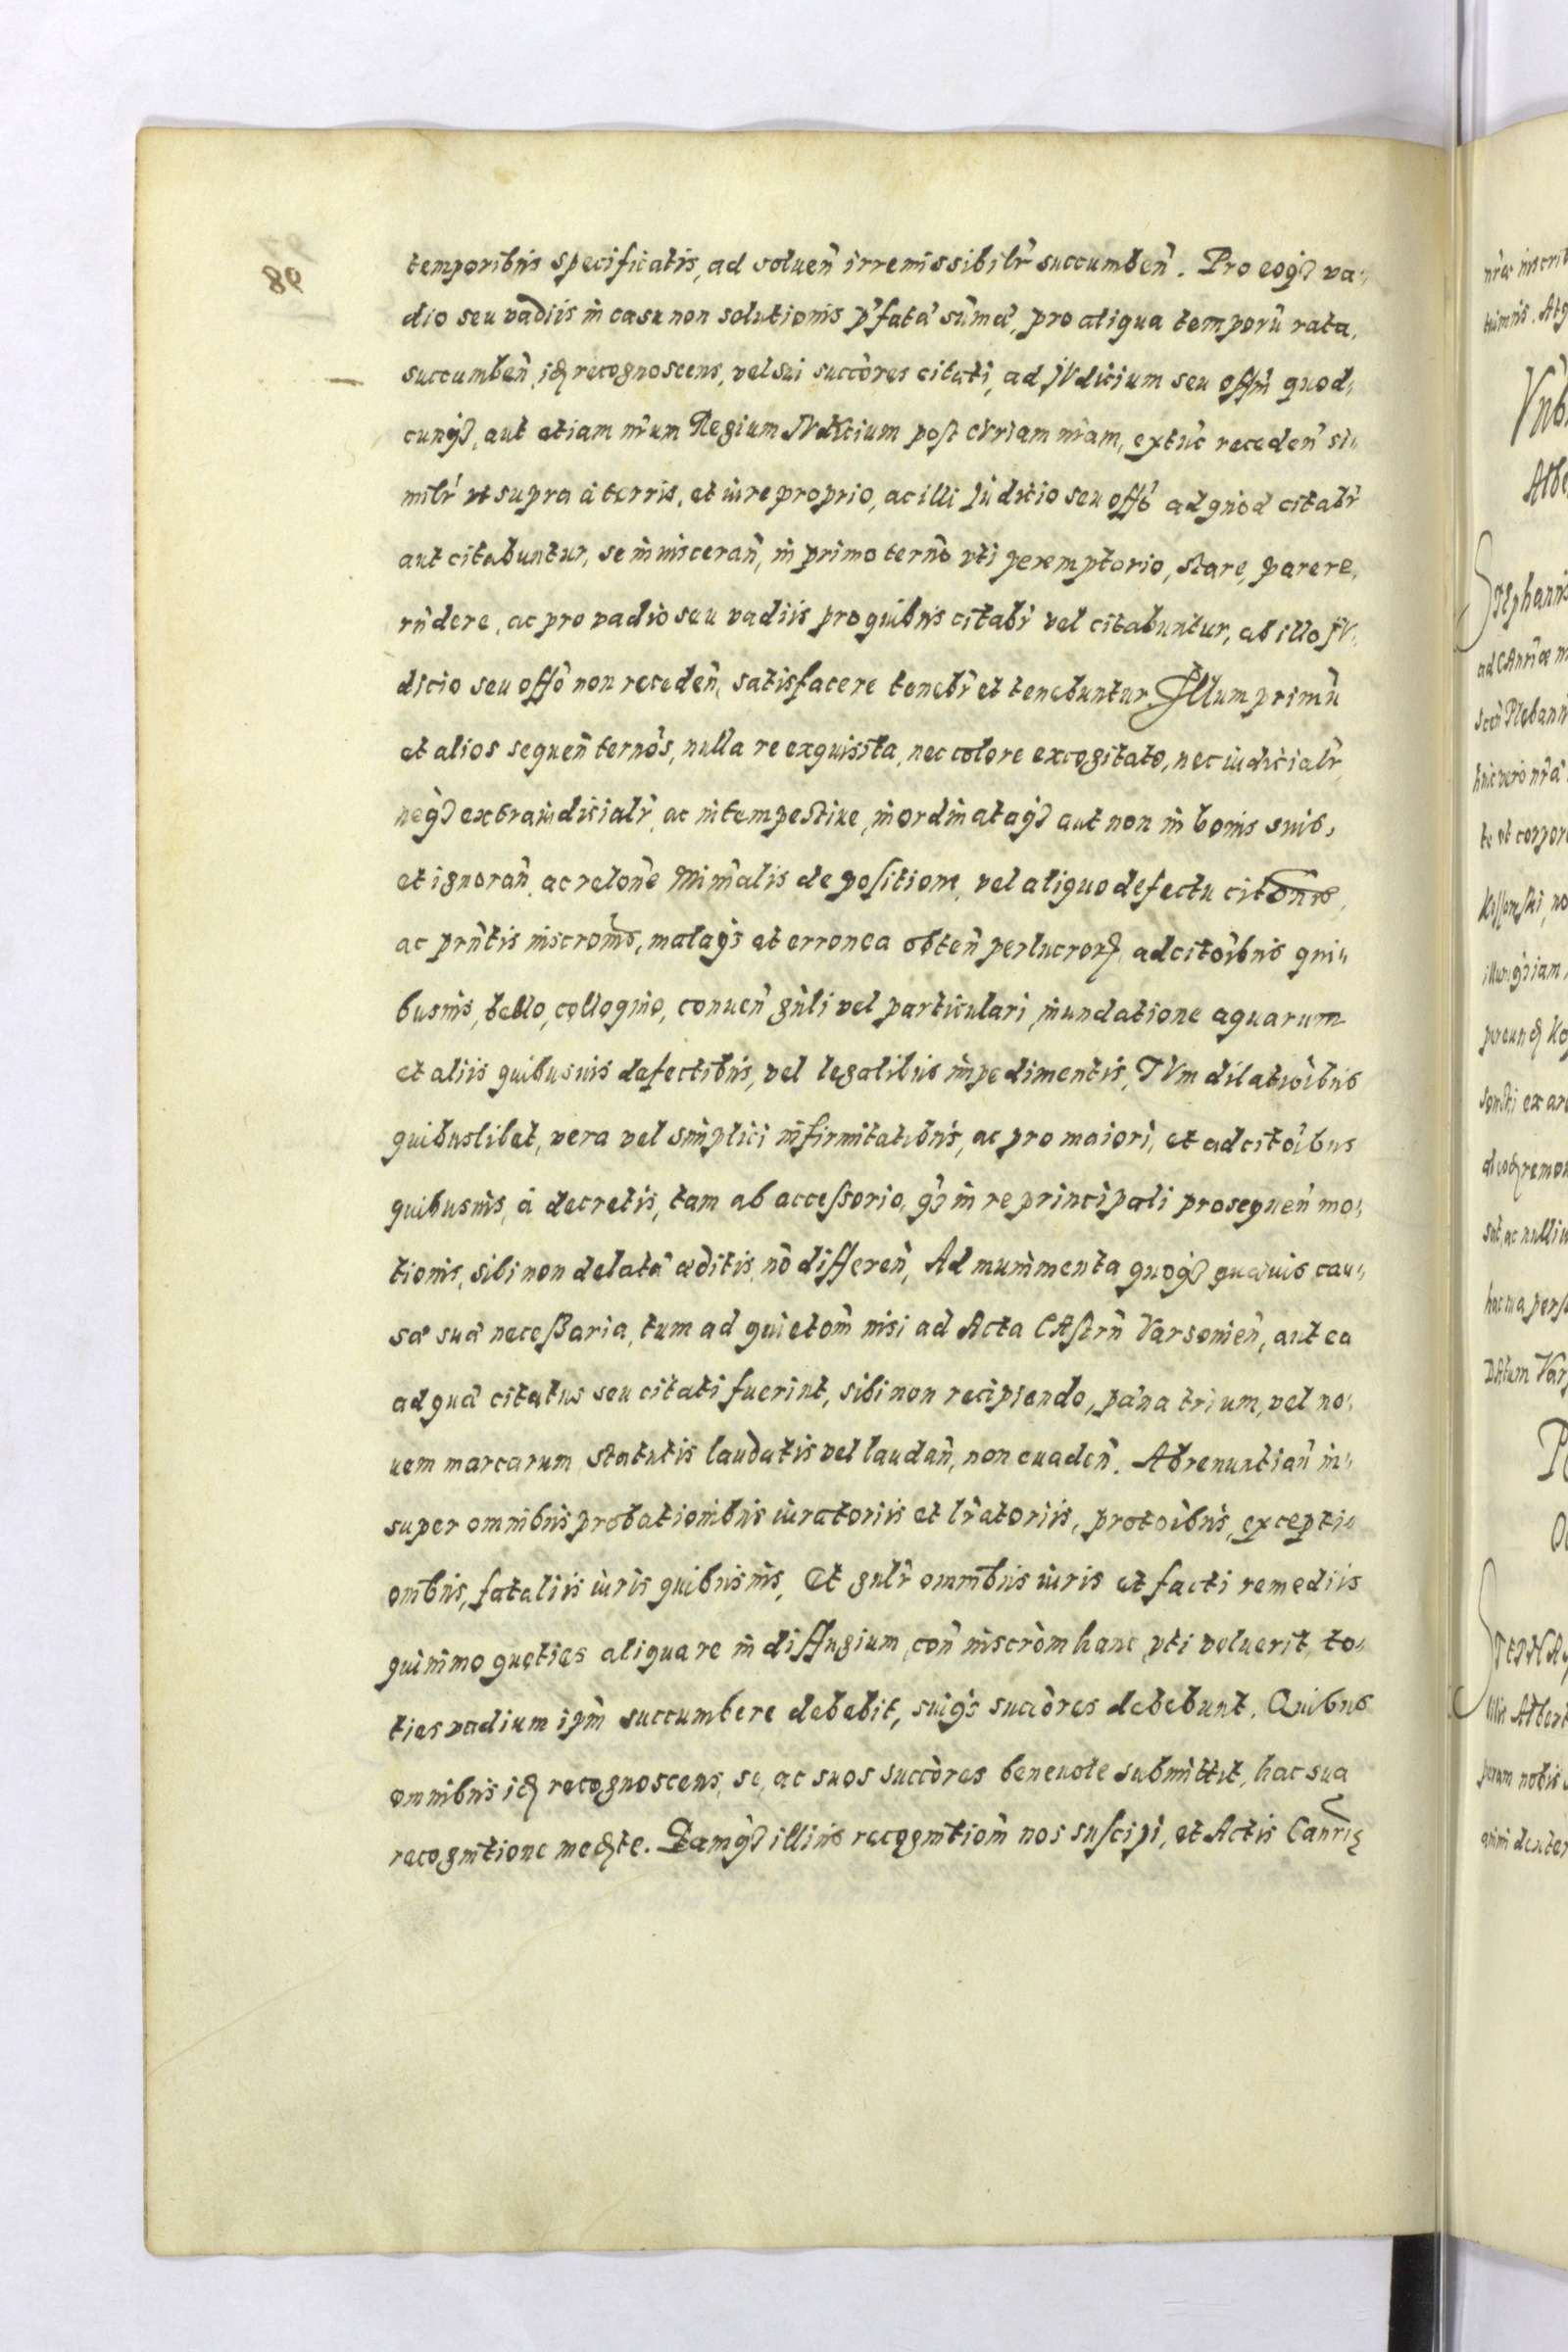 98
temporibus specificatis, ad soluen̄ irremissibilr̄ succumben̄. Pro eoq₃ va⸗
dio seu vadiis in casu non solutionis p̄fatæ sūmæ, pro aliqua temporū rata,
succumben̄, idē recognoscens, vel sui succōres citati, ad JVdicium seu offm̄ quod⸗
cunq₃, aut etiam nrūm Regium JVdicium post cVriam nrām, extūc receden̄ si⸗
milr̄ vt supra à terris, et iure proprio, ac illi Judicio seu offō ad quod citabr̄
aut citabuntur, se inuisceran̄, in primo terno vti peremptorio, stare, parere,
rn̄dere, ac pro vadio seu vadiis pro quibus citabr̄ vel citabuntur, ab illo JV⸗
dicio seu offō non receden̄, satisfacere tenebr̄ et tenebuntur. Illum primū
et alios sequen̄ ternōs, nulla re exquisita, nec colore excogitato, nec iudicialr̄,
neq₃ extraiudicialr̄, ac intempestiue, inordinataq₃ aut non in bonis suis,
et ignoran̄, ac relōne Min̄rialis depositiom̄, vel aliquo defectu citōnis,
ac prn̄tis inscrōnis, malaq₃ et erronea obten̄ per lucrorē, ad citōibus qui⸗
busuis, bello, colloquio, conuen̄ gn̄li vel particulari, inundatione aquarum
et aliis quibusuis defectibus, vel legalibus impedimentis, TVm dilatiōibus
quibuslibet, vera vel simplici infirmitatibus, ac pro maiori, et ad citōibus
quibusuis, à decretis, tam ab accessorio, q₃ in re principali prosequen̄ mo⸗
tionis, sibi non delatæ æditis, nō differen̄, Ad munimenta quoq₃ quæuis cau⸗
sæ suæ necessaria, tum ad quietom̄ nisi ad Acta CAstrn̄ Varsouien̄, aut ea
ad quæ citatus seu citati fuerint, sibi non recipiendo, pæna trium, vel no⸗
uem marcarum statutis laudatis vel laudan̄, non euaden̄. Abrenuntian̄ in⸗
super omnibus probationibus iuratoriis et lrātoriis, protōibus, excepti⸗
onibus, fataliis iuris quibusuis, Et gnlr̄ omnibus iuris et facti remediis
quinimo quoties aliqua re in diffugium, con̄ inscrōm hanc vti voluerit, to⸗
ties vadium ipm̄ succumbere debebit, suiq₃ succōres debebunt. Quibus
omnibus idē recognoscens, se, ac suos succōres beneuole submittit, hac sua
recognitione med̄te. Quamq₃ illius recognitiom̄ nos suscipi, et Actis Canriæ